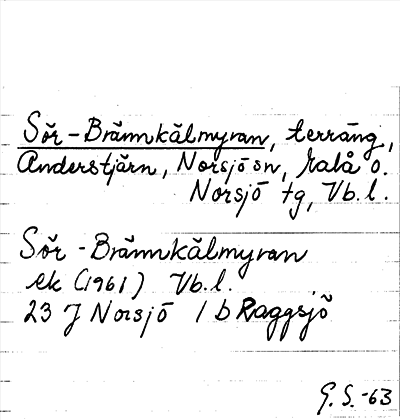 Sör-Brännkälmyran, terräng,
Anderstjärn, Norsjö sn, Malå o.
Norsjö tg, Vb.l.
Sör-Brännkälmyran
ek (1961) Vb.l.
23 J Norsjö 1 b Raggsjö
G.S.-63